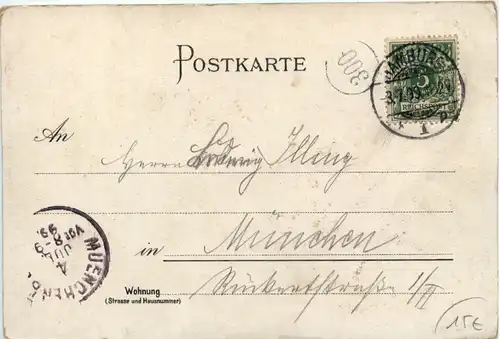 POSTKARTE
300
HAMBURG
5
REICHSPOST
1
An
Herrn Ludwig Illing
in München
MUENCHEN
4
JUL
8-9
99
Wohnung
(Strasse und Hausnummer)
Rückertstraße 1/II
15€